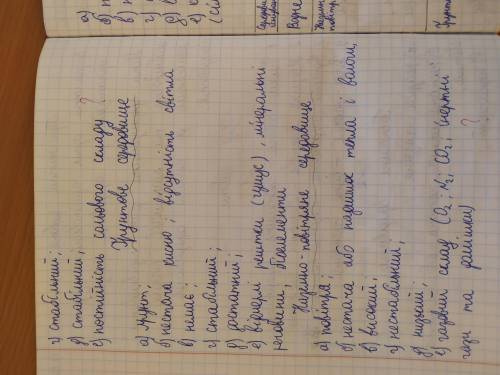 г) стабільний;
д) стабільний;
е) постійність сольового складу ?
Ґрунтове середовище
а) ґрунт;
б) нестача кисню; відсутність світла
в) немає;
г) стабільний;
д) достатній;
е) відмерлі рештки (гумус), мінеральні
речовини, біоелементи
Наземно-повітряне середовище
а) повітря;
б) нестача або надлишок тепла і вологи,
в) високий;
г) нестабільний;
д) низький;
е) газовий склад (O₂; N₂, CO₂, інертні
гази та домішки) ?
а)
б)
в)
г)
д)
е)
Водне